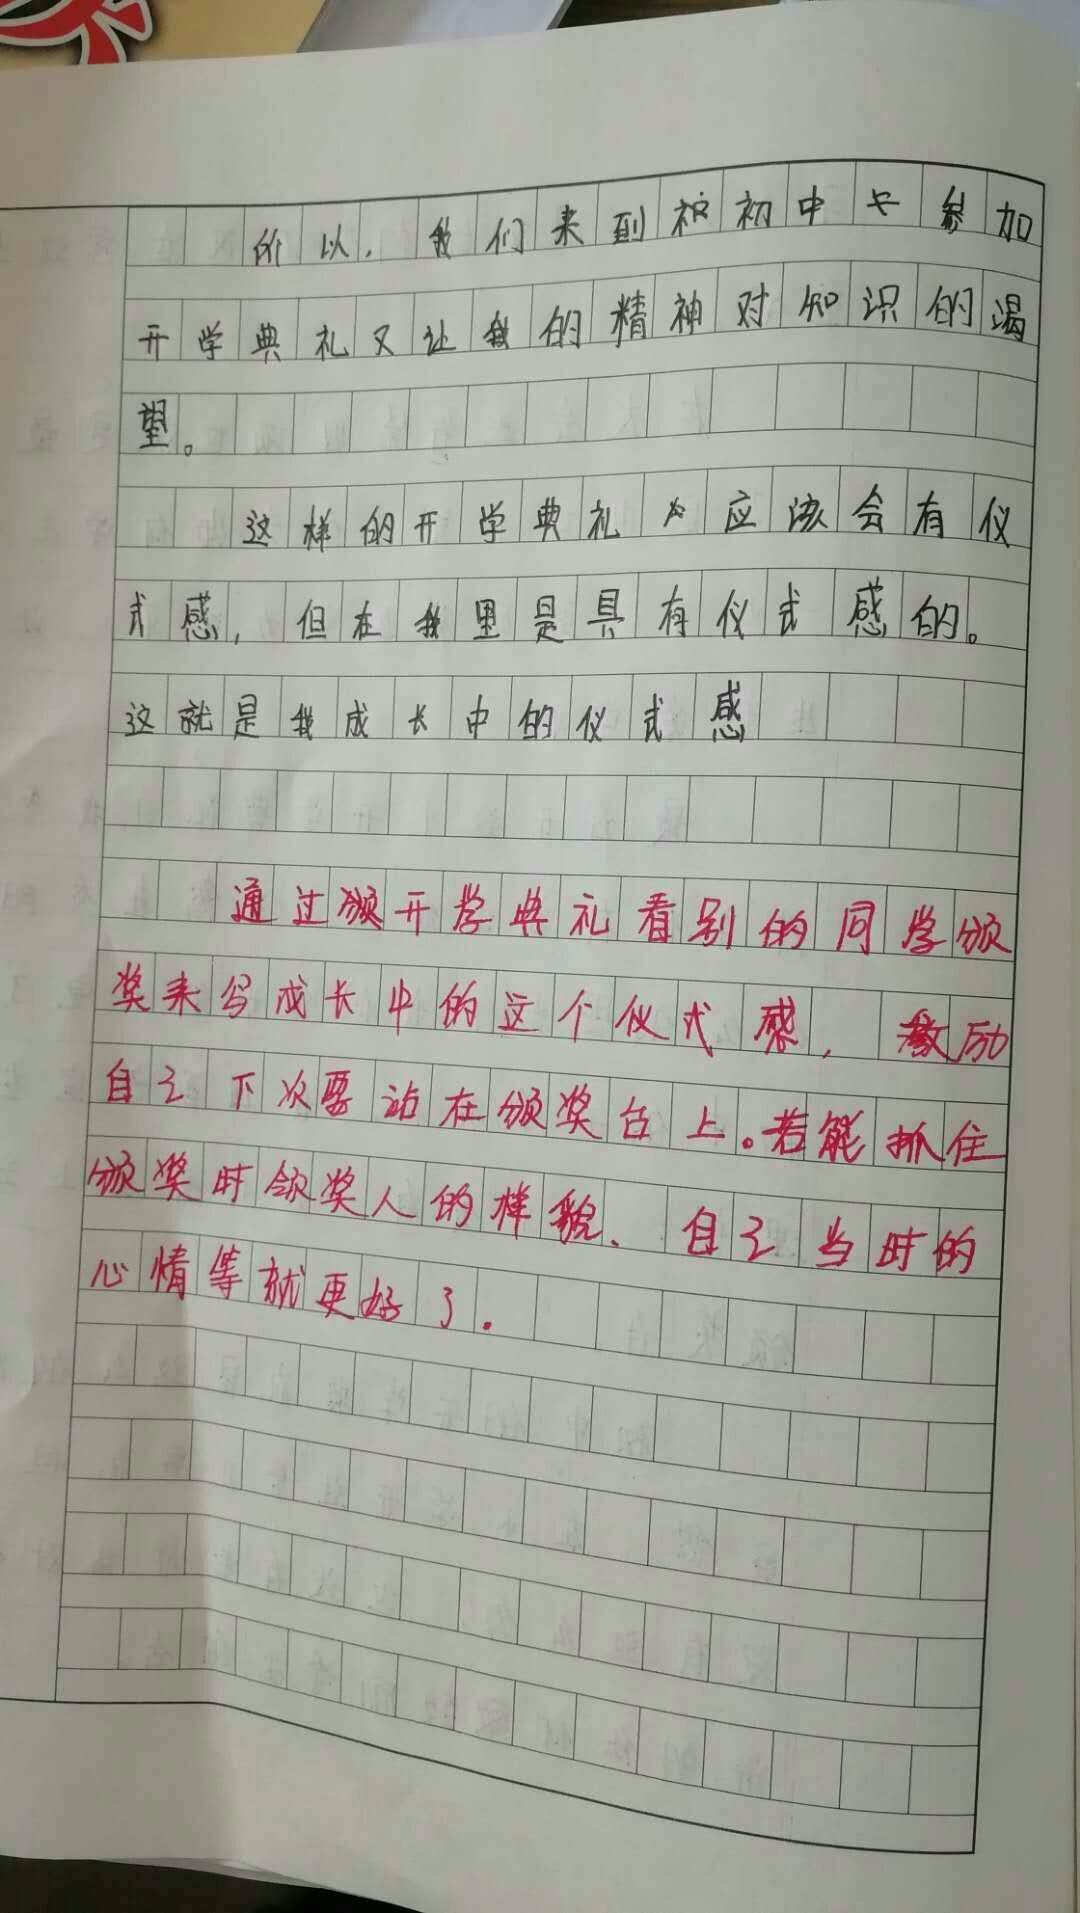 所以，我们来到初中参加
开学典礼又让我的精神对知识的渴
望。
这样的开学典礼应该会有仪
式感，但在我里是具有仪式感的。
这就是我成长中的仪式感
通过颁开学典礼看别的同学颁
奖来写成长中的这个仪式感，激励
自己下次要站在颁奖台上。若能抓住
颁奖时领奖人的样貌、自己当时的
心情等就更好了.